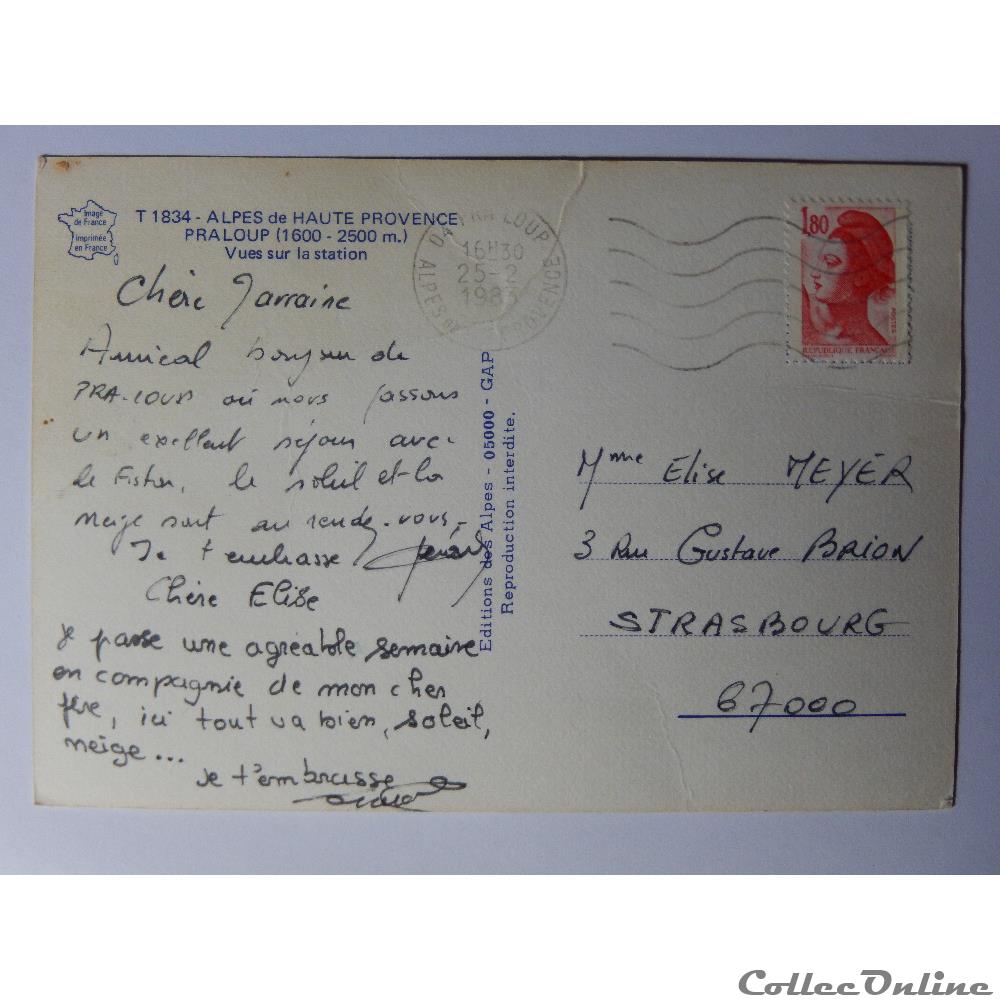 Image
de France
Imprimée
en France
T 1834 - ALPES de HAUTE PROVENCE
PRALOUP (1600 - 2500 m.)
Vues sur la station
04 PRA LOUP
16H30
25-2
198
ALPES DE PROVENCE
1,80
POSTES
REPUBLIQUE FRANCAISE
Chère Marraine
Amical bonjour de
PRA-LOUP où nous passons
un exellent séjour avec
le Fiston, le soleil et la
neige sont au rendez-vous,
Je t'embrasse
Chère Elise
Je passe une agréable semaine
en compagnie de mon cher
père, ici tout va bien, soleil,
neige...
Je t'embrasse
Editions des Alpes - 05000 - GAP
Reproduction interdite.
Mme Elise MEYER
3 Rue Gustave BRION
STRASBOURG
67000
CollecOnline